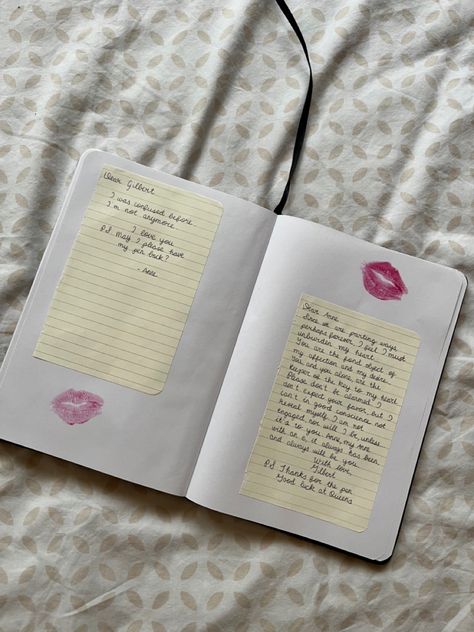 Dear Gilbert
I was confused before
I'm not anymore
I love you
P.S May I please have
my pen back?
- Anne
Dear Anne
Since we are parting ways
perhaps forever, I feel I must
unburden my heart
You are the fond object of
my affection and my desire.
You and you alone, are the
keeper of the key to my heart
Please don't be alarmed I
don't expect your favor, but I
can't in good conscience not
reveal myself. I am not
engaged, nor will I be, unless
it's to you Anne, my Anne
with an e, it always has been
and always will be you.
With love,
Gilbert
P.S Thanks for the pen
Good luck at Queens